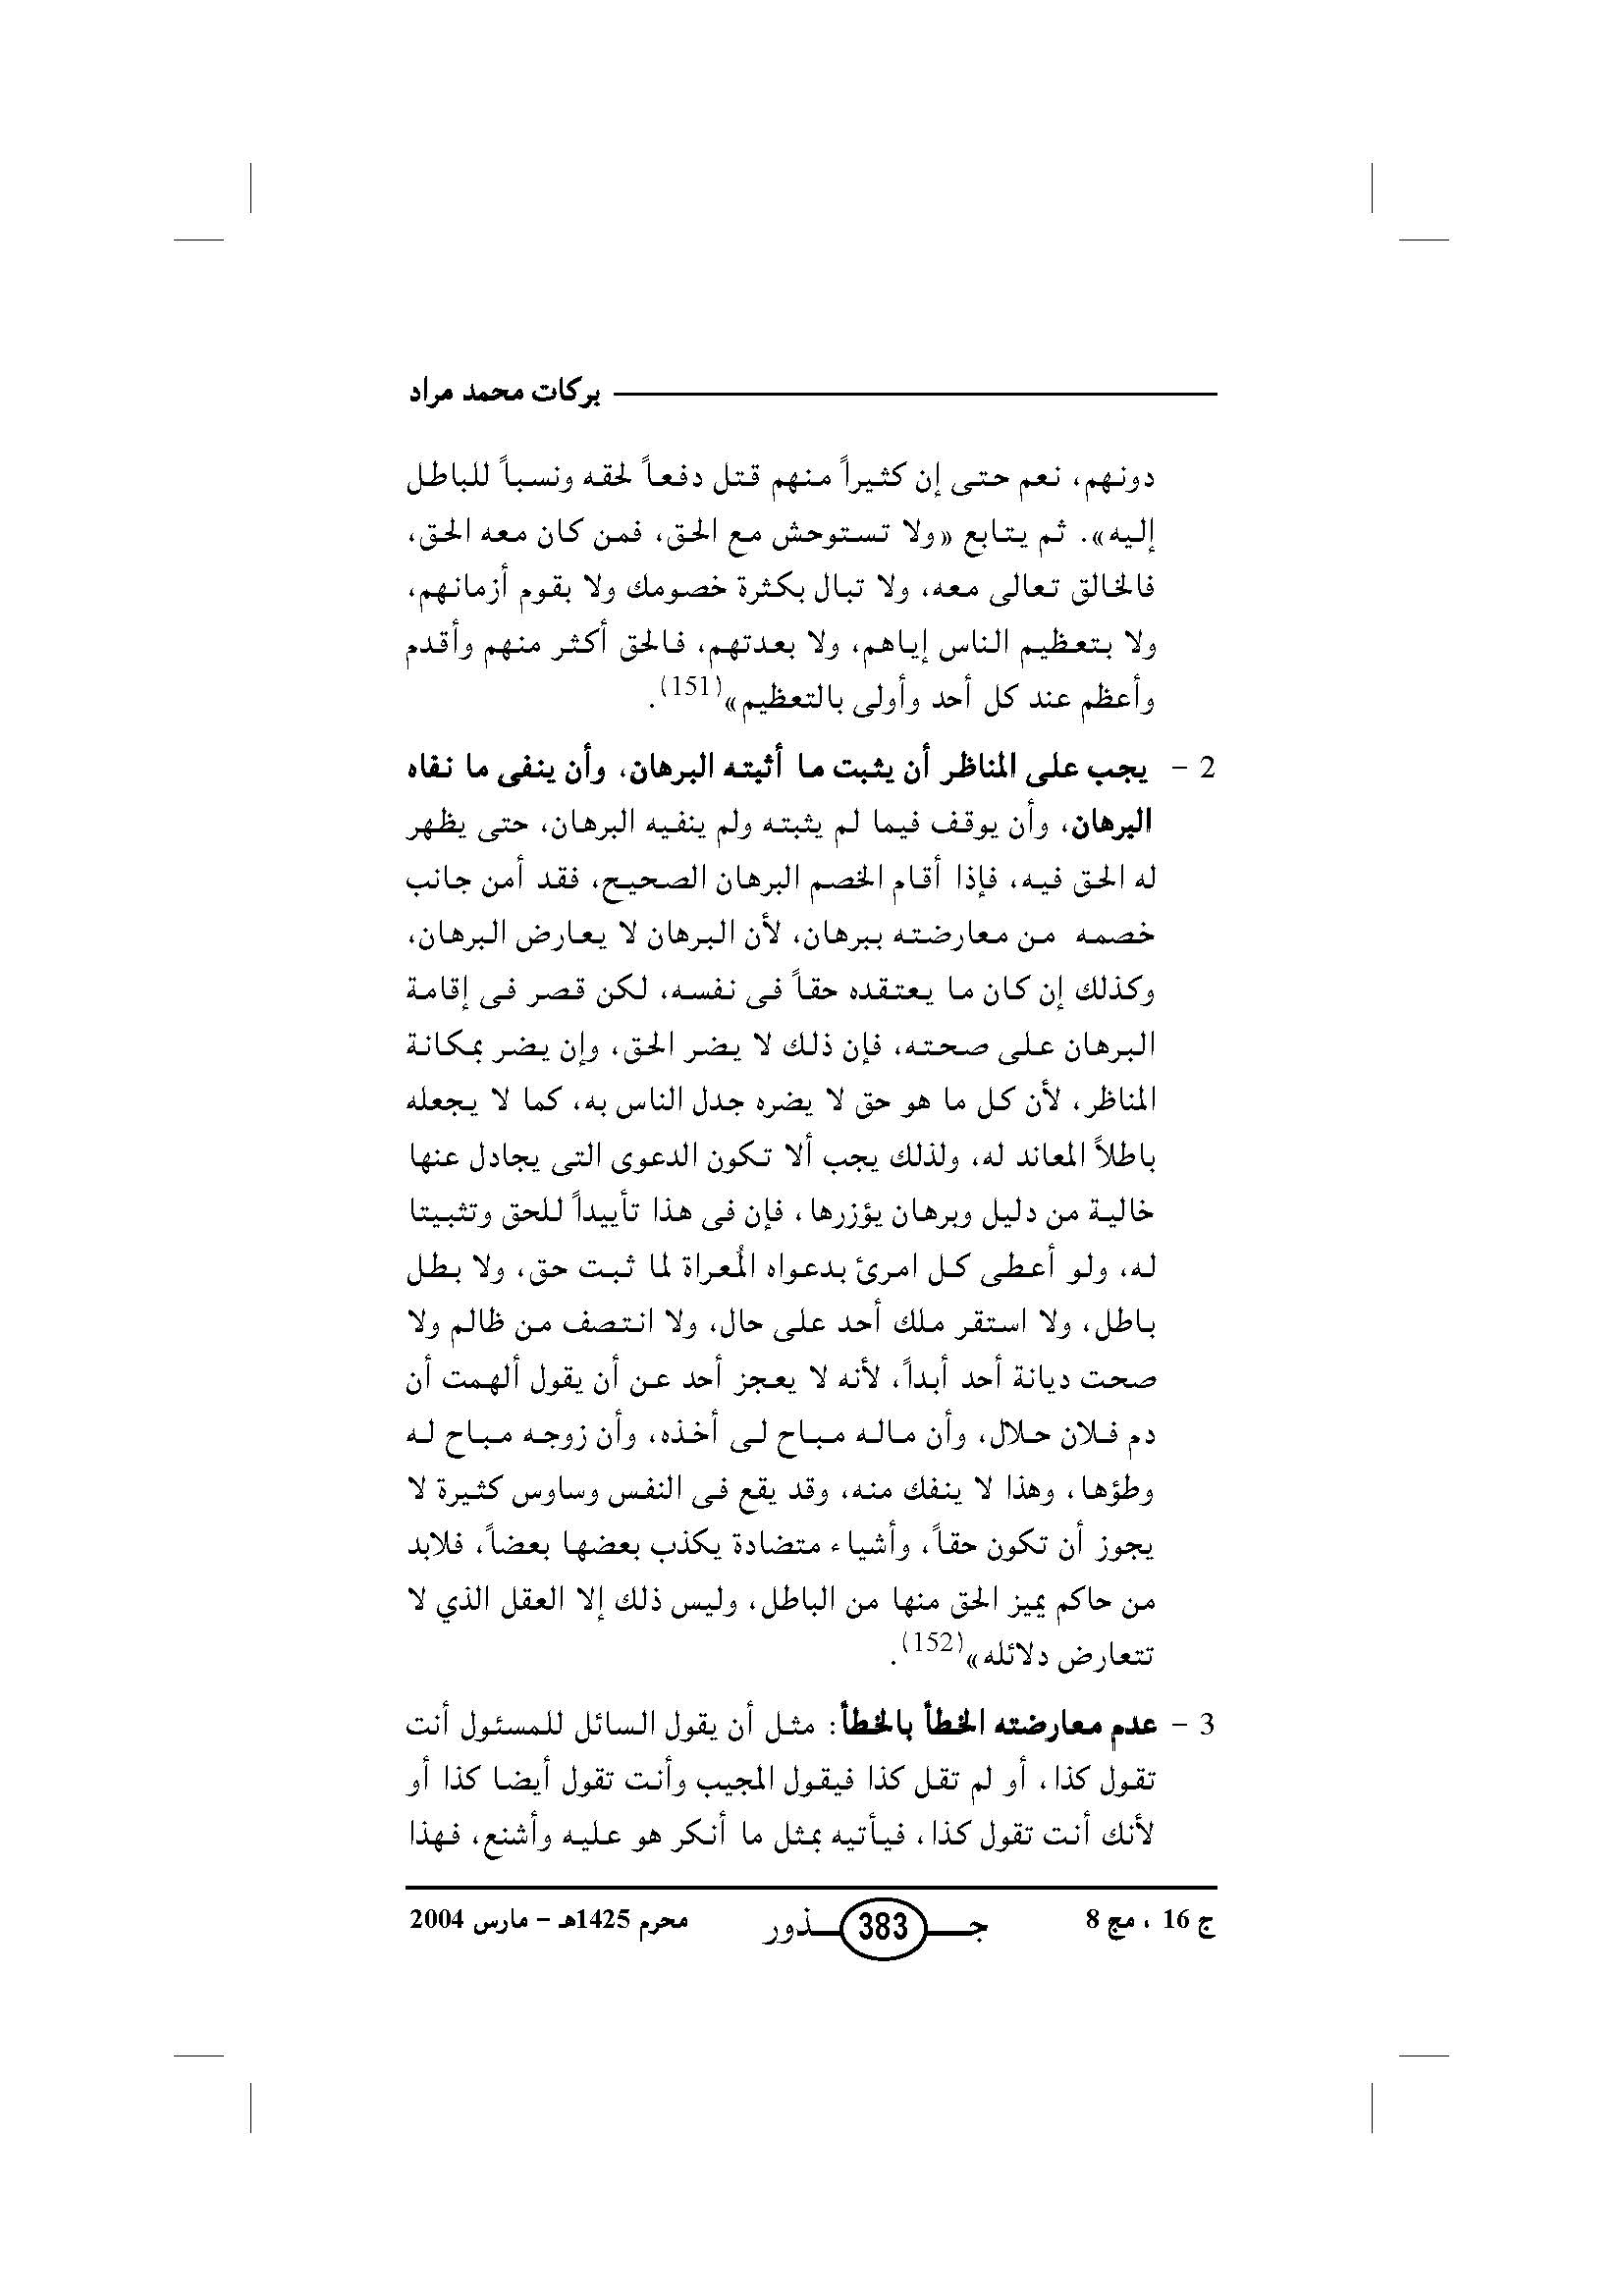 بركات محمد مراد
دونهم، نعم حتى إن كثيراً منهم قتل دفعاً لحقه ونسباً للباطل
إليه». ثم يتابع «ولا تستوحش مع الحق، فمن كان معه الحق،
فالخالق تعالى معه، ولا تبال بكثرة خصومك ولا بقوم أزمانهم،
ولا بتعظيم الناس إياهم، ولا بعدتهم، فالحق أكثر منهم وأقدم
وأعظم عند كل أحد وأولى بالتعظيم»(151).
2 - يجب على المناظر أن يثبت ما أثبته البرهان، وأن ينفى ما نفاه
البرهان، وأن يوقف فيما لم يثبته ولم ينفيه البرهان، حتى يظهر
له الحق فيه، فإذا أقام الخصم البرهان الصحيح، فقد أمن جانب
خصمه من معارضته ببرهان، لأن البرهان لا يعارض البرهان،
وكذلك إن كان ما يعتقده حقاً فى نفسه، لكن قصر فى إقامة
البرهان على صحته، فإن ذلك لا يضر الحق، وإن يضر بمكانة
المناظر، لأن كل ما هو حق لا يضره جدل الناس به، كما لا يجعله
باطلاً المعاند له، ولذلك يجب ألا تكون الدعوى التى يجادل عنها
خالية من دليل وبرهان يؤزرها، فإن فى هذا تأييداً للحق وتثبيتا
له، ولو أعطى كل امرئ بدعواه المُعراة لما ثبت حق، ولا بطل
باطل، ولا استقر ملك أحد على حال، ولا انتصف من ظالم ولا
صحت ديانة أحد أبداً، لأنه لا يعجز أحد عن أن يقول ألهمت أن
دم فلان حلال، وأن ماله مباح لى أخذه، وأن زوجه مباح له
وطؤها، وهذا لا ينفك منه، وقد يقع فى النفس وساوس كثيرة لا
يجوز أن تكون حقاً، وأشياء متضادة يكذب بعضها بعضاً، فلابد
من حاكم يميز الحق منها من الباطل، وليس ذلك إلا العقل الذي لا
تتعارض دلائله»(152).
3 - عدم معارضته الخطأ بالخطأ: مثل أن يقول السائل للمسئول أنت
تقول كذا، أو لم تقل كذا فيقول المجيب وأنت تقول أيضا كذا أو
لأنك أنت تقول كذا، فيأتيه بمثل ما أنكر هو عليه وأشنع، فهذا
ج 16 ، مج 8 جـــذور 383 محرم 1425هـ - مارس 2004